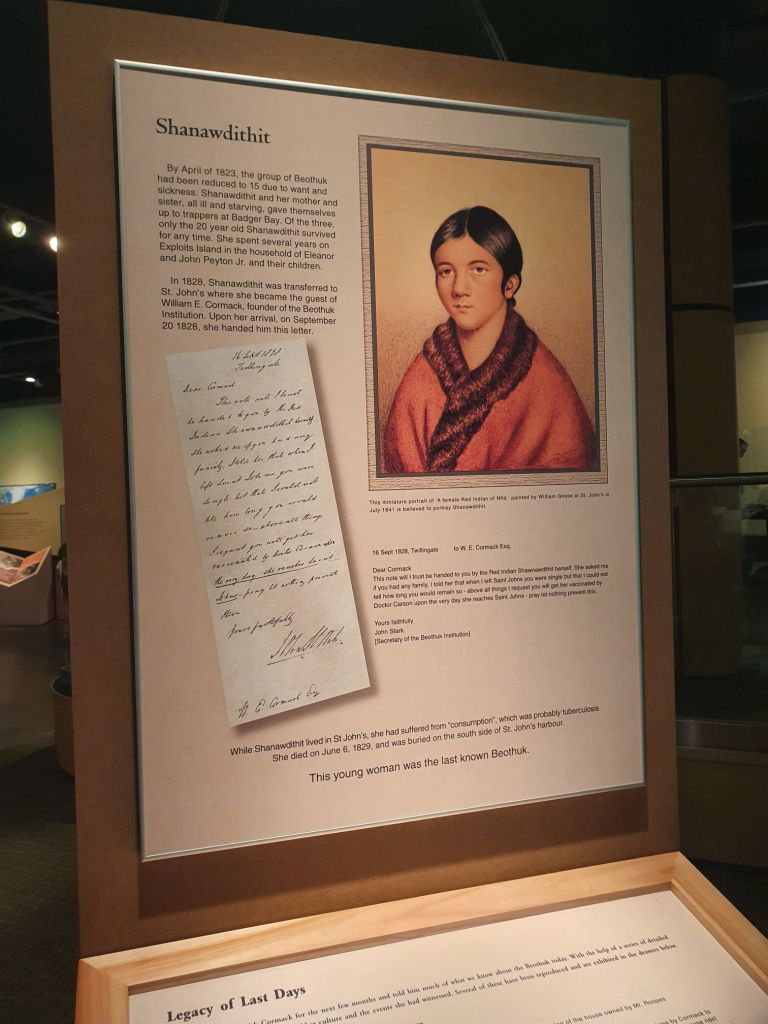 Shanawdithit
By April of 1823, the group of Beothuk
had been reduced to 15 due to want and
sickness. Shanawdithit and her mother and
sister, all ill and starving, gave themselves
up to trappers at Badger Bay. Of the three,
only the 20 year old Shanawdithit survived
for any time. She spent several years on
Exploits Island in the household of Eleanor
and John Peyton Jr. and their children.
In 1828, Shanawdithit was transferred to
St. John's where she became the guest of
William E. Cormack, founder of the Beothuk
Institution. Upon her arrival, on September
20 1828, she handed him this letter.
16 Sept 1828
Twillingate
Dear Cormack
This note will I trust
be handed to you by the Red
Indian Shawnawdithit herself
She asked me if you had any
family, I told her that when I
left Saint Johns you were
single but that I could not
tell how long you would
remain so - above all things
I request you will get her
vaccinated by Doctor Carson upon
the very day she reaches Saint
Johns - pray let nothing prevent
this
Yours faithfully
John Stark
W. E. Cormack Esq
This miniature portrait of 'A female Red Indian of Nfld.' painted by William Gosse at St. John's in
July 1841 is believed to portray Shanawdithit.
16 Sept 1828, Twillingate to W. E. Cormack Esq.
Dear Cormack
This note will I trust be handed to you by the Red Indian Shawnawdithit herself. She asked me
if you had any family. I told her that when I left Saint Johns you were single but that I could not
tell how long you would remain so - above all things I request you will get her vaccinated by
Doctor Carson upon the very day she reaches Saint Johns - pray let nothing prevent this.
Yours faithfully
John Stark
[Secretary of the Beothuk Institution]
While Shanawdithit lived in St John's, she had suffered from "consumption", which was probably tuberculosis.
She died on June 6, 1829, and was buried on the south side of St. John's harbour.
This young woman was the last known Beothuk.
Legacy of Last Days
Cormack for the next few months and told him much of what we know about the Beothuk today. With the help of a series of detailed
culture and the events she had witnessed. Several of these have been reproduced and are exhibited in the drawers below.
of the house owned by Mr. Roopes
by Cormack to